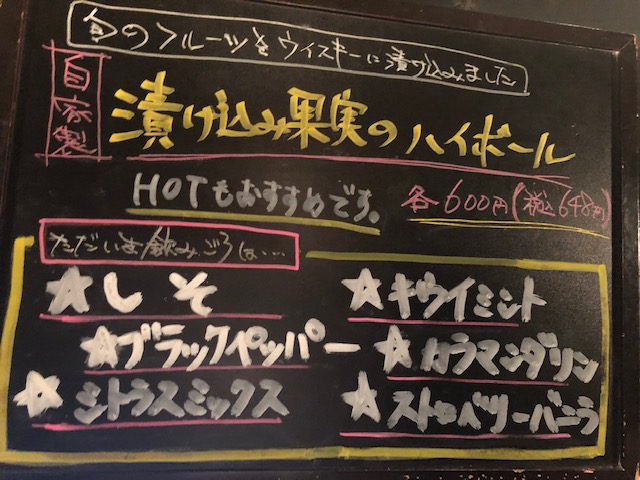 旬のフルーツをウィスキーに漬け込みました
自家製
漬け込み果実のハイボール
HOTもおすすめです。
各600円(税込648円)
ただいま飲みごろは…
☆しそ
☆キウイミント
☆ブラックペッパー
☆カラマンダリン
☆シトラスミックス
☆ストロベリーバニラ